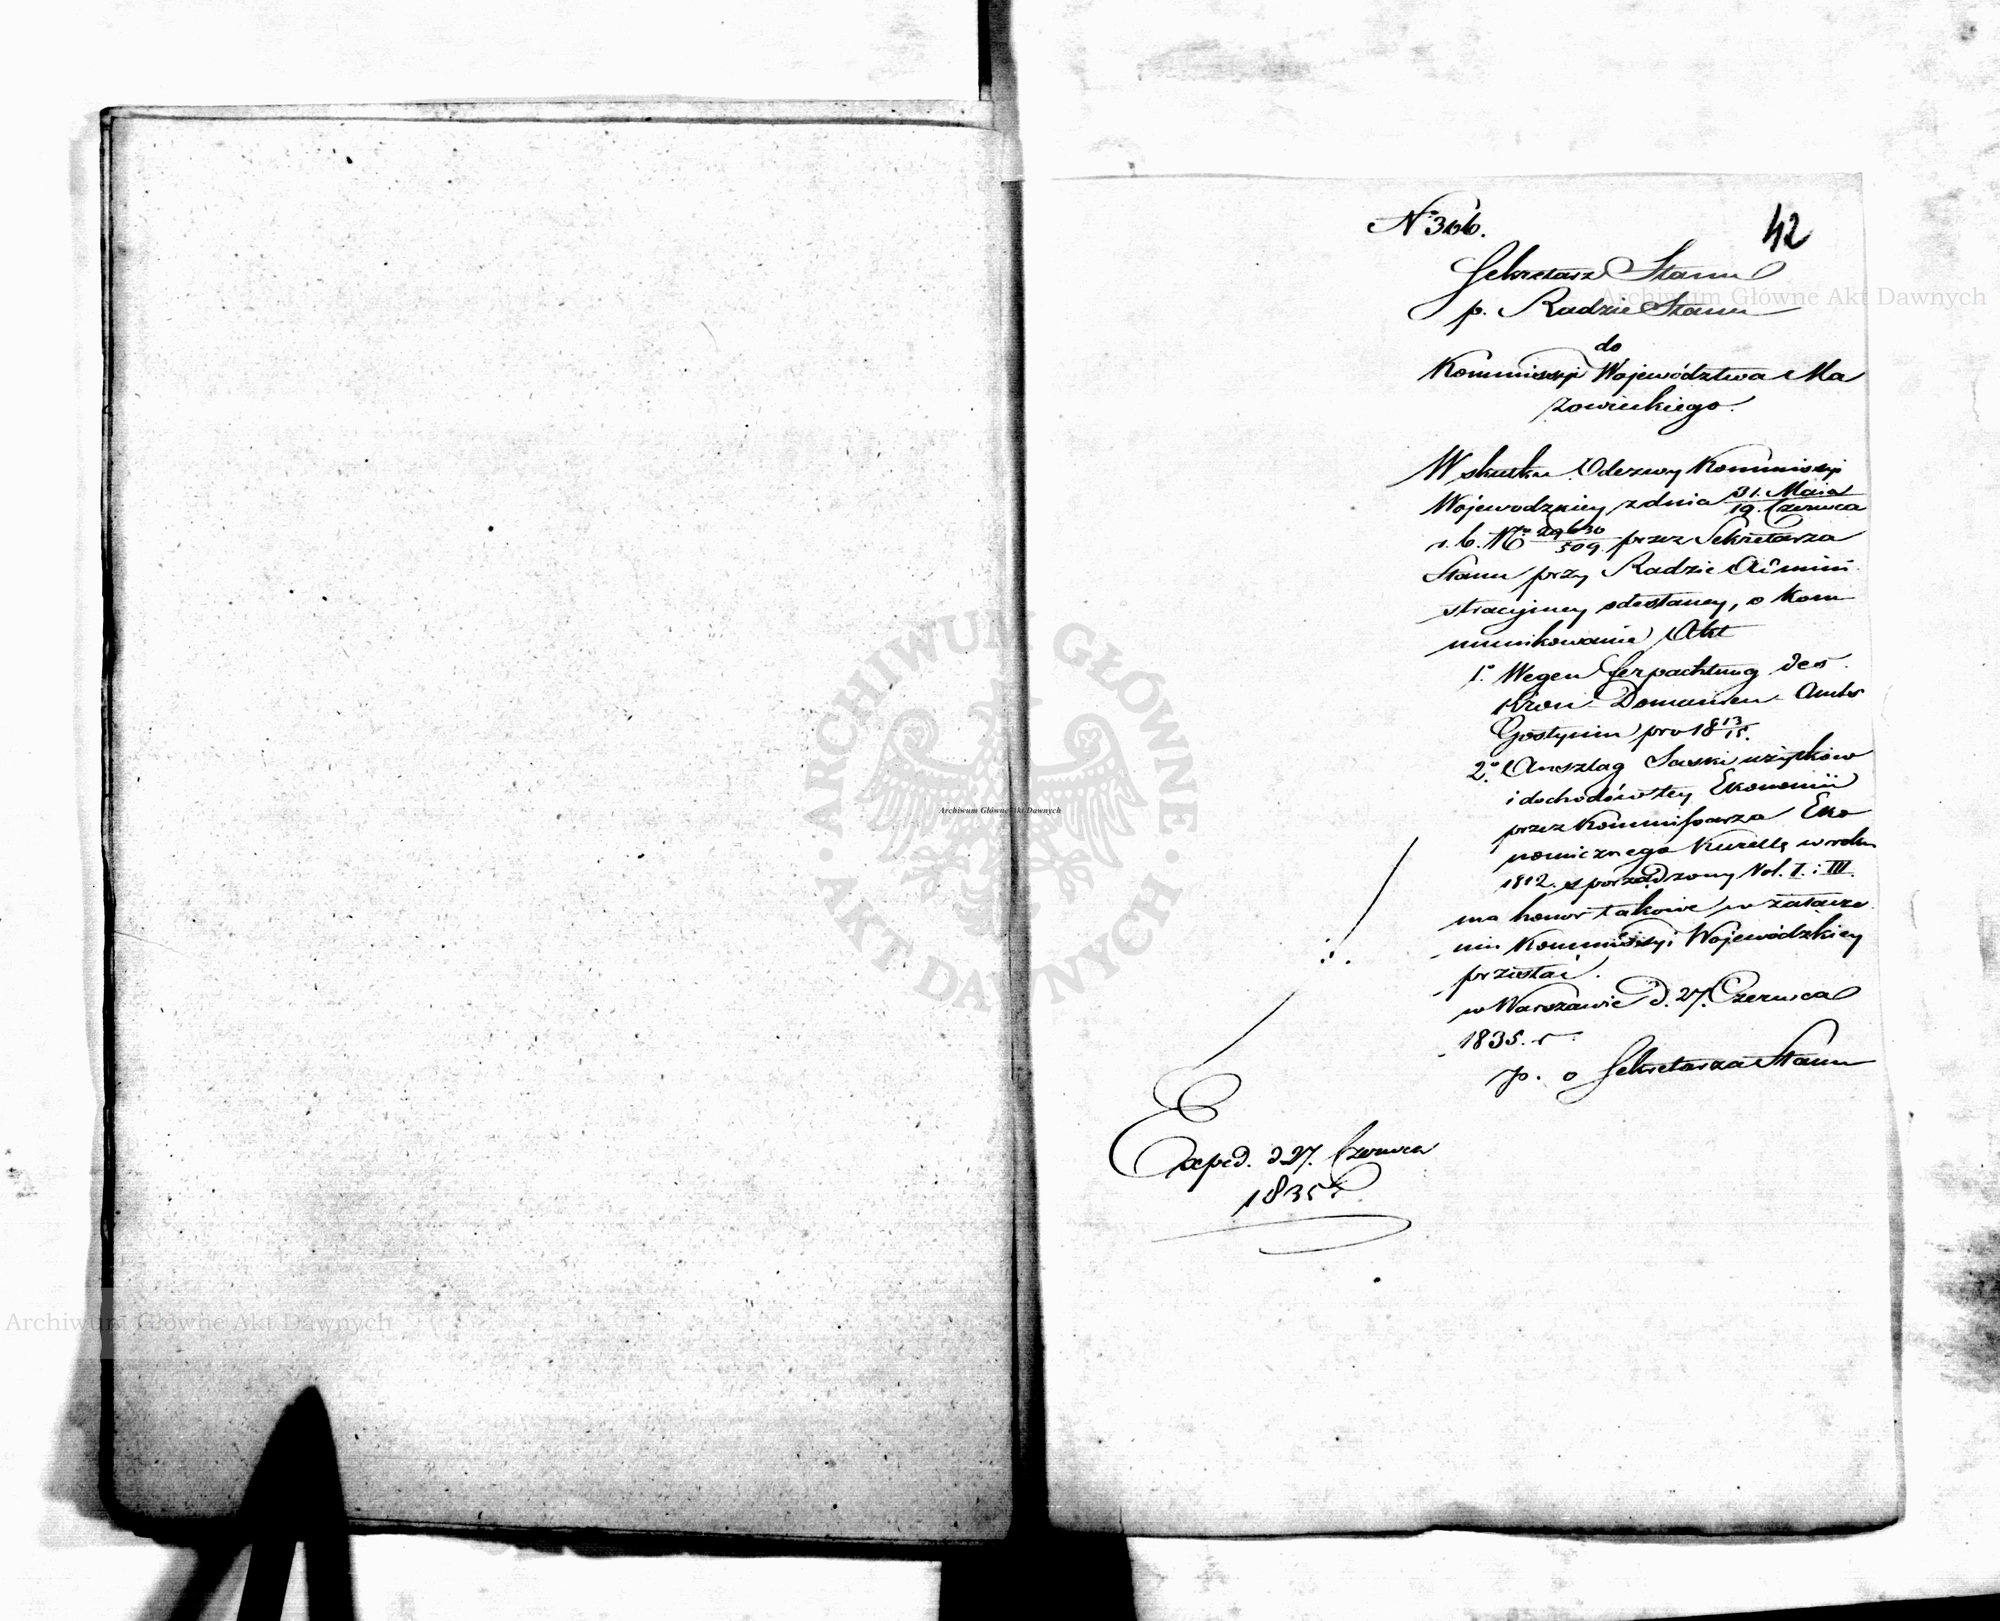 42
No 366.
Sekretarz Stanu
p. Radzie Stanu
do
Kommissyi Województwa Ma
zowieckiego.
W skutku Odezwy Kommissyi
Wojewodzkiey z dnia 31. Maia / 19. Czerwca
r. b. No / 509. przez Sekretarza
Stanu przy Radzie Admini
stracyjney odesłaney, o kom
munikowanie Akt
1o Wegen Verpachtung des
Kron Domainen Amts
Gostynin pro 18 13/15.
2o Anszlag Saski użytków
i dochodów tey Ekonomii
przez Kommissarza Eko
nomicznego Kurellę w roku
1812. sporządzony Vol. I. i III.
ma honor takowe w załącze
niu Kommissyi Wojewódzkiey
przesłać.
w Warszawie d. 27. Czerwca
1835. r.
p. o Sekretarza Stanu
Exped. d 27. Czerwca
1835 r.
Archiwum Główne Akt Dawnych
ARCHIWUM GŁÓWNE
AKT DAWNYCH
Archiwum Główne Akt Dawnych
Archiwum Główne Akt Dawnych